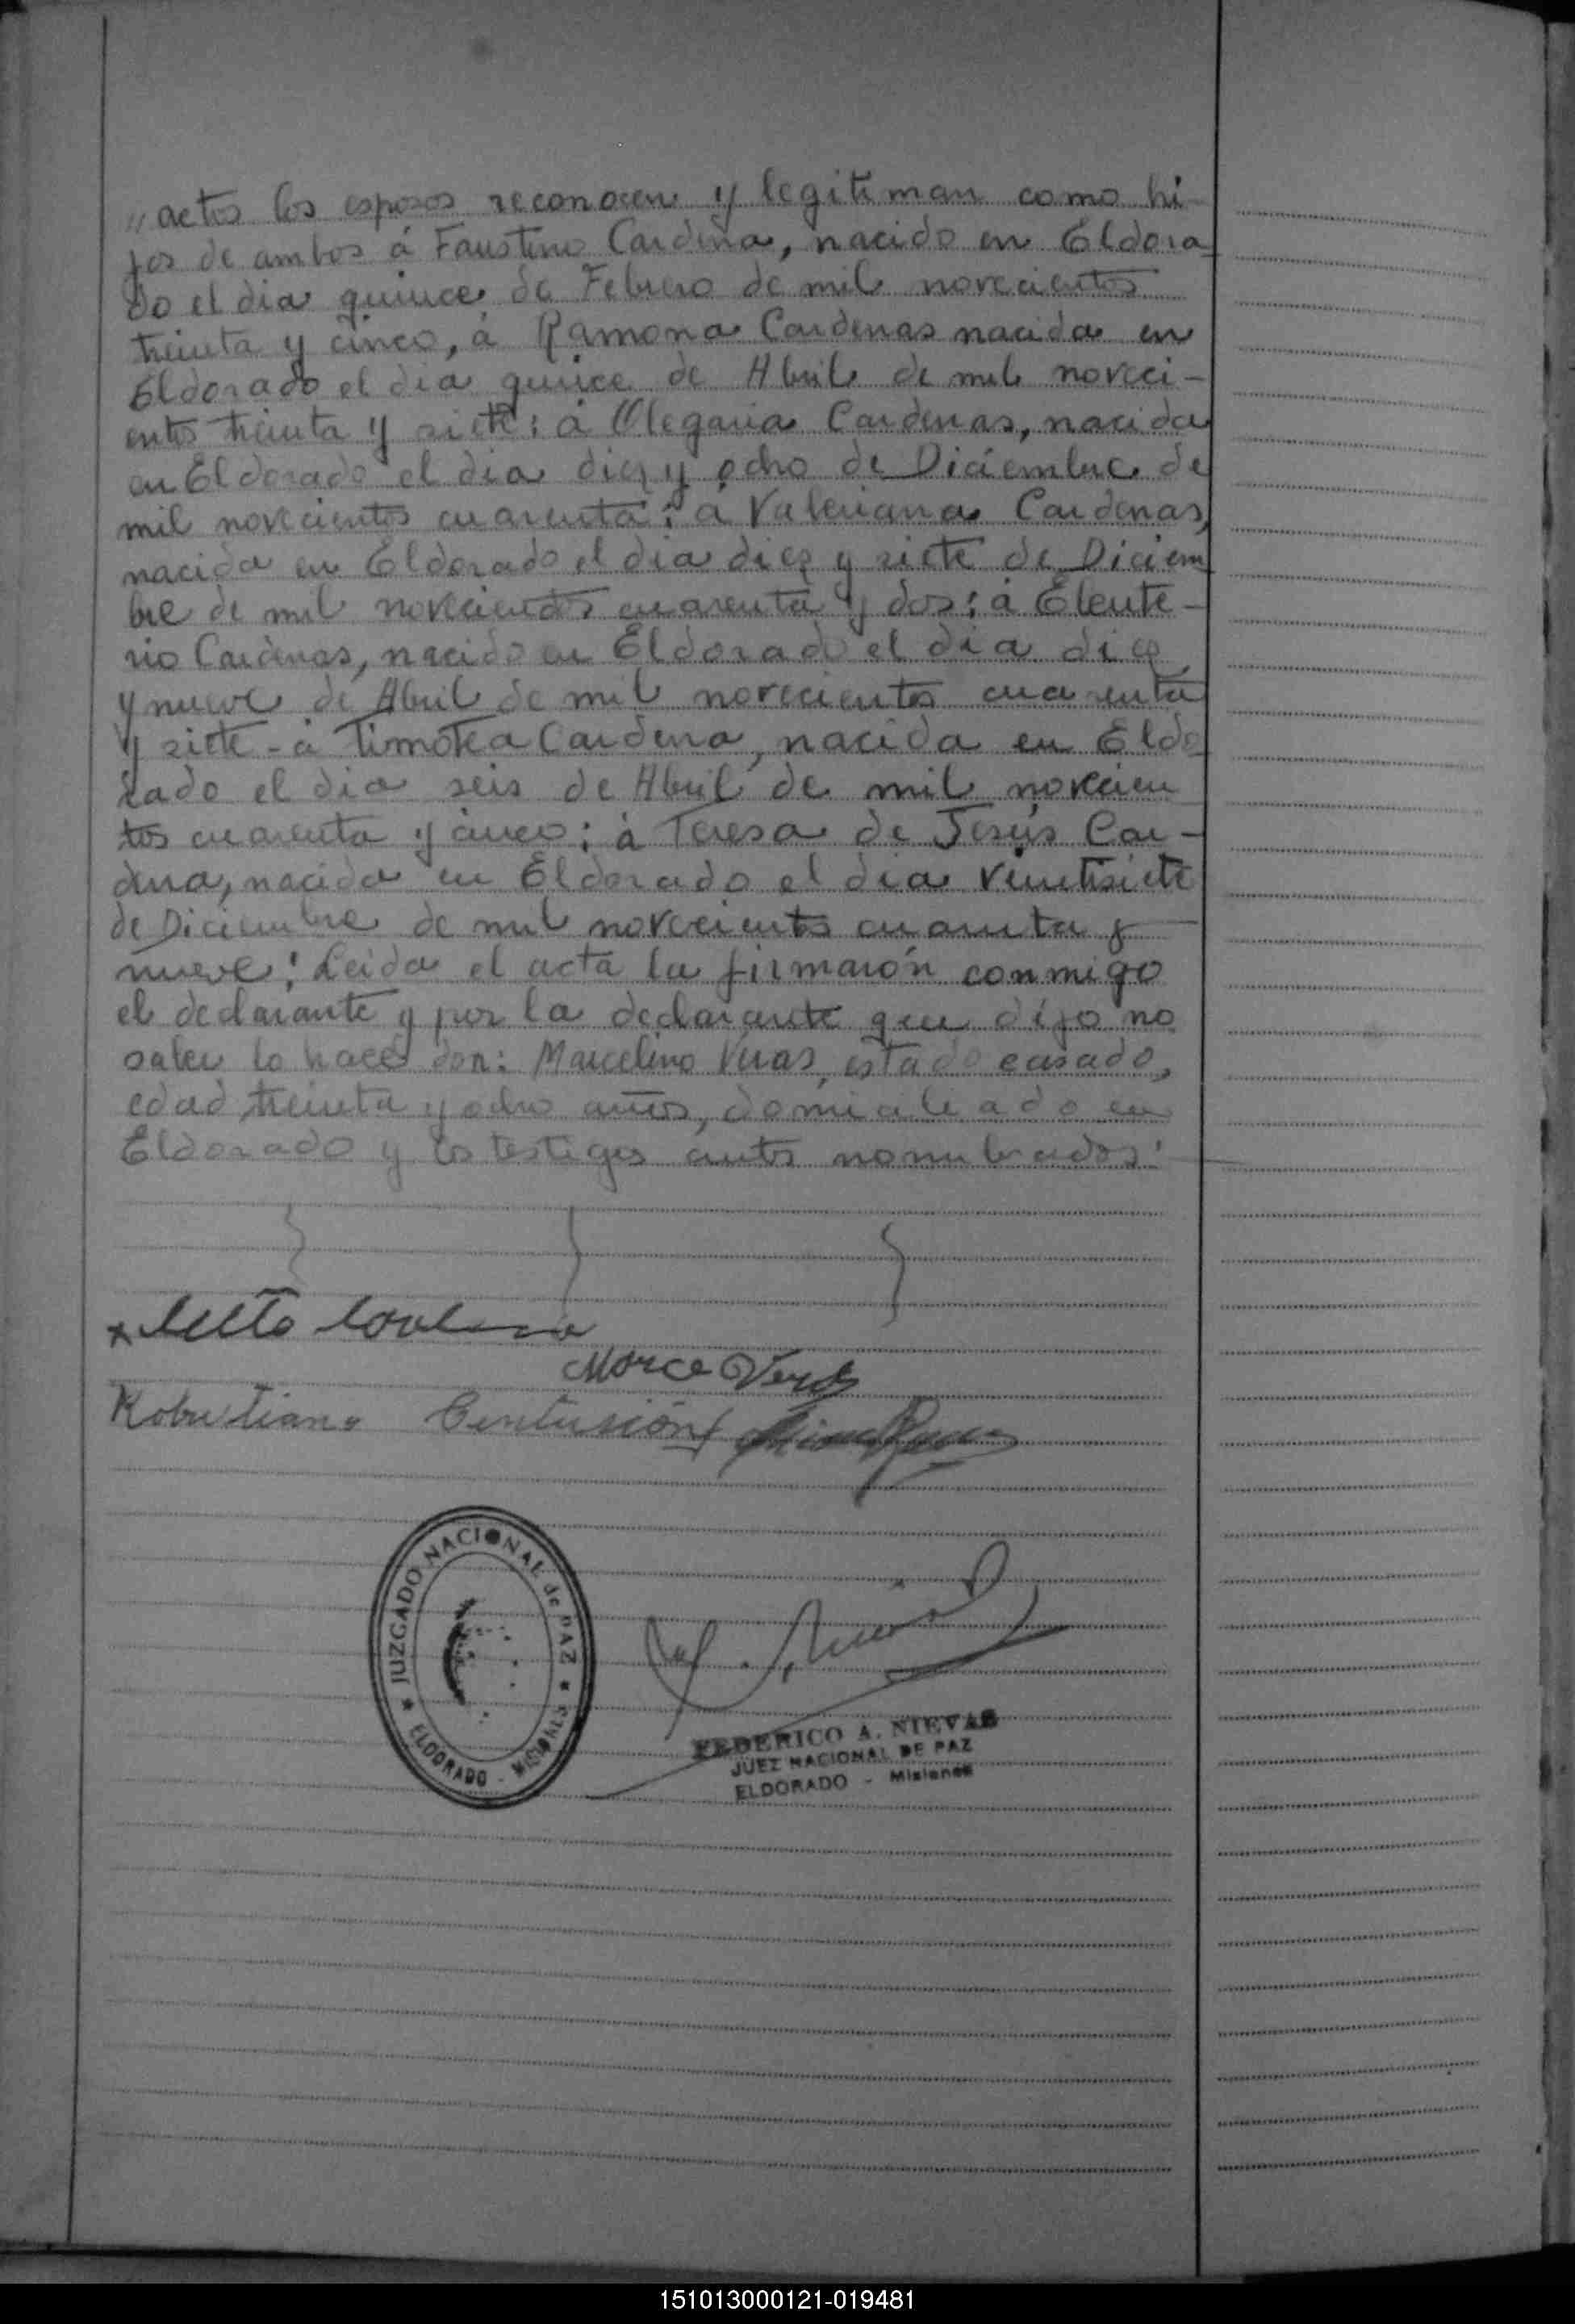 "actos los esposos reconocen y legitiman como hi-
jos de ambos á Faustino Cardena, nacido en Eldora-
do el dia quince de Febrero de mil novecientos
treinta y cinco, á Ramona Cardenas nacida en
Eldorado el dia quince de Abril de mil noveci-
entos treinta y siete; á Olegaria Cardenas, nacida
en Eldorado el dia diez y ocho de Diciembre de
mil novecientos cuarenta; á Valeriana Cardenas,
nacida en Eldorado el dia diez y siete de Diciem
bre de mil novecientos cuarenta y dos; á Eleute-
rio Cardenas, nacido en Eldorado el dia diez
y nueve de Abril de mil novecientos cuarenta
y siete - á Timotea Cardena, nacida en Eldo
rado el dia seis de Abril de mil novecien
tos cuarenta y cinco; á Teresa de Jesús Car-
dena, nacida en Eldorado el dia veintisiete
de Diciembre de mil novecientos cuarenta y
nueve; Leida el acta la firmarón conmigo
el declarante y por la declarante que dijo no
saber lo hace don: Marcelino Veras, estado casado,
edad treinta y ocho años, domiciliado en
Eldorado y los testigos antes nombrados:
Marce Veras
Robustiano Centurión
JUZGADO NACIONAL de PAZ
ELDORADO - MISIONES
FEDERICO A. NIEVAS
JUEZ NACIONAL DE PAZ
ELDORADO - Misiones
151013000121-019481